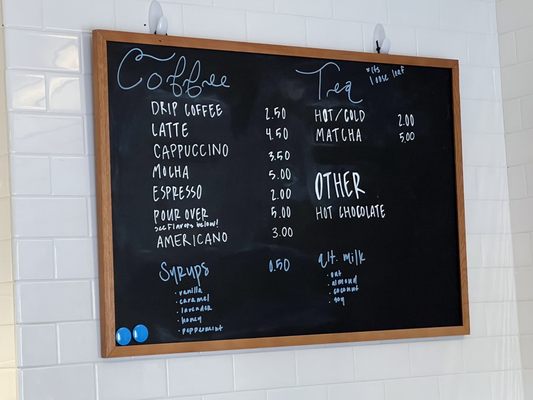 Coffee
DRIP COFFEE 2.50
LATTE 4.50
CAPPUCCINO 3.50
MOCHA 5.00
ESPRESSO 2.00
POUR OVER 5.00
see flavors below!
AMERICANO 3.00
Syrups 0.50
• vanilla
• caramel
• lavender
• honey
• peppermint
Tea
*its
loose leaf
HOT/COLD 2.00
MATCHA 5.00
OTHER
HOT CHOCOLATE
alt. milk
• oat
• almond
• coconut
• soy